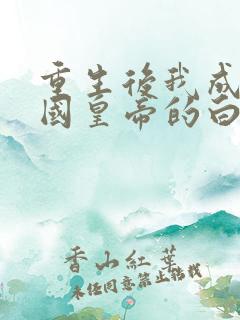 重生後我成
國皇帝的白
香山紅葉
未经同意禁止转载